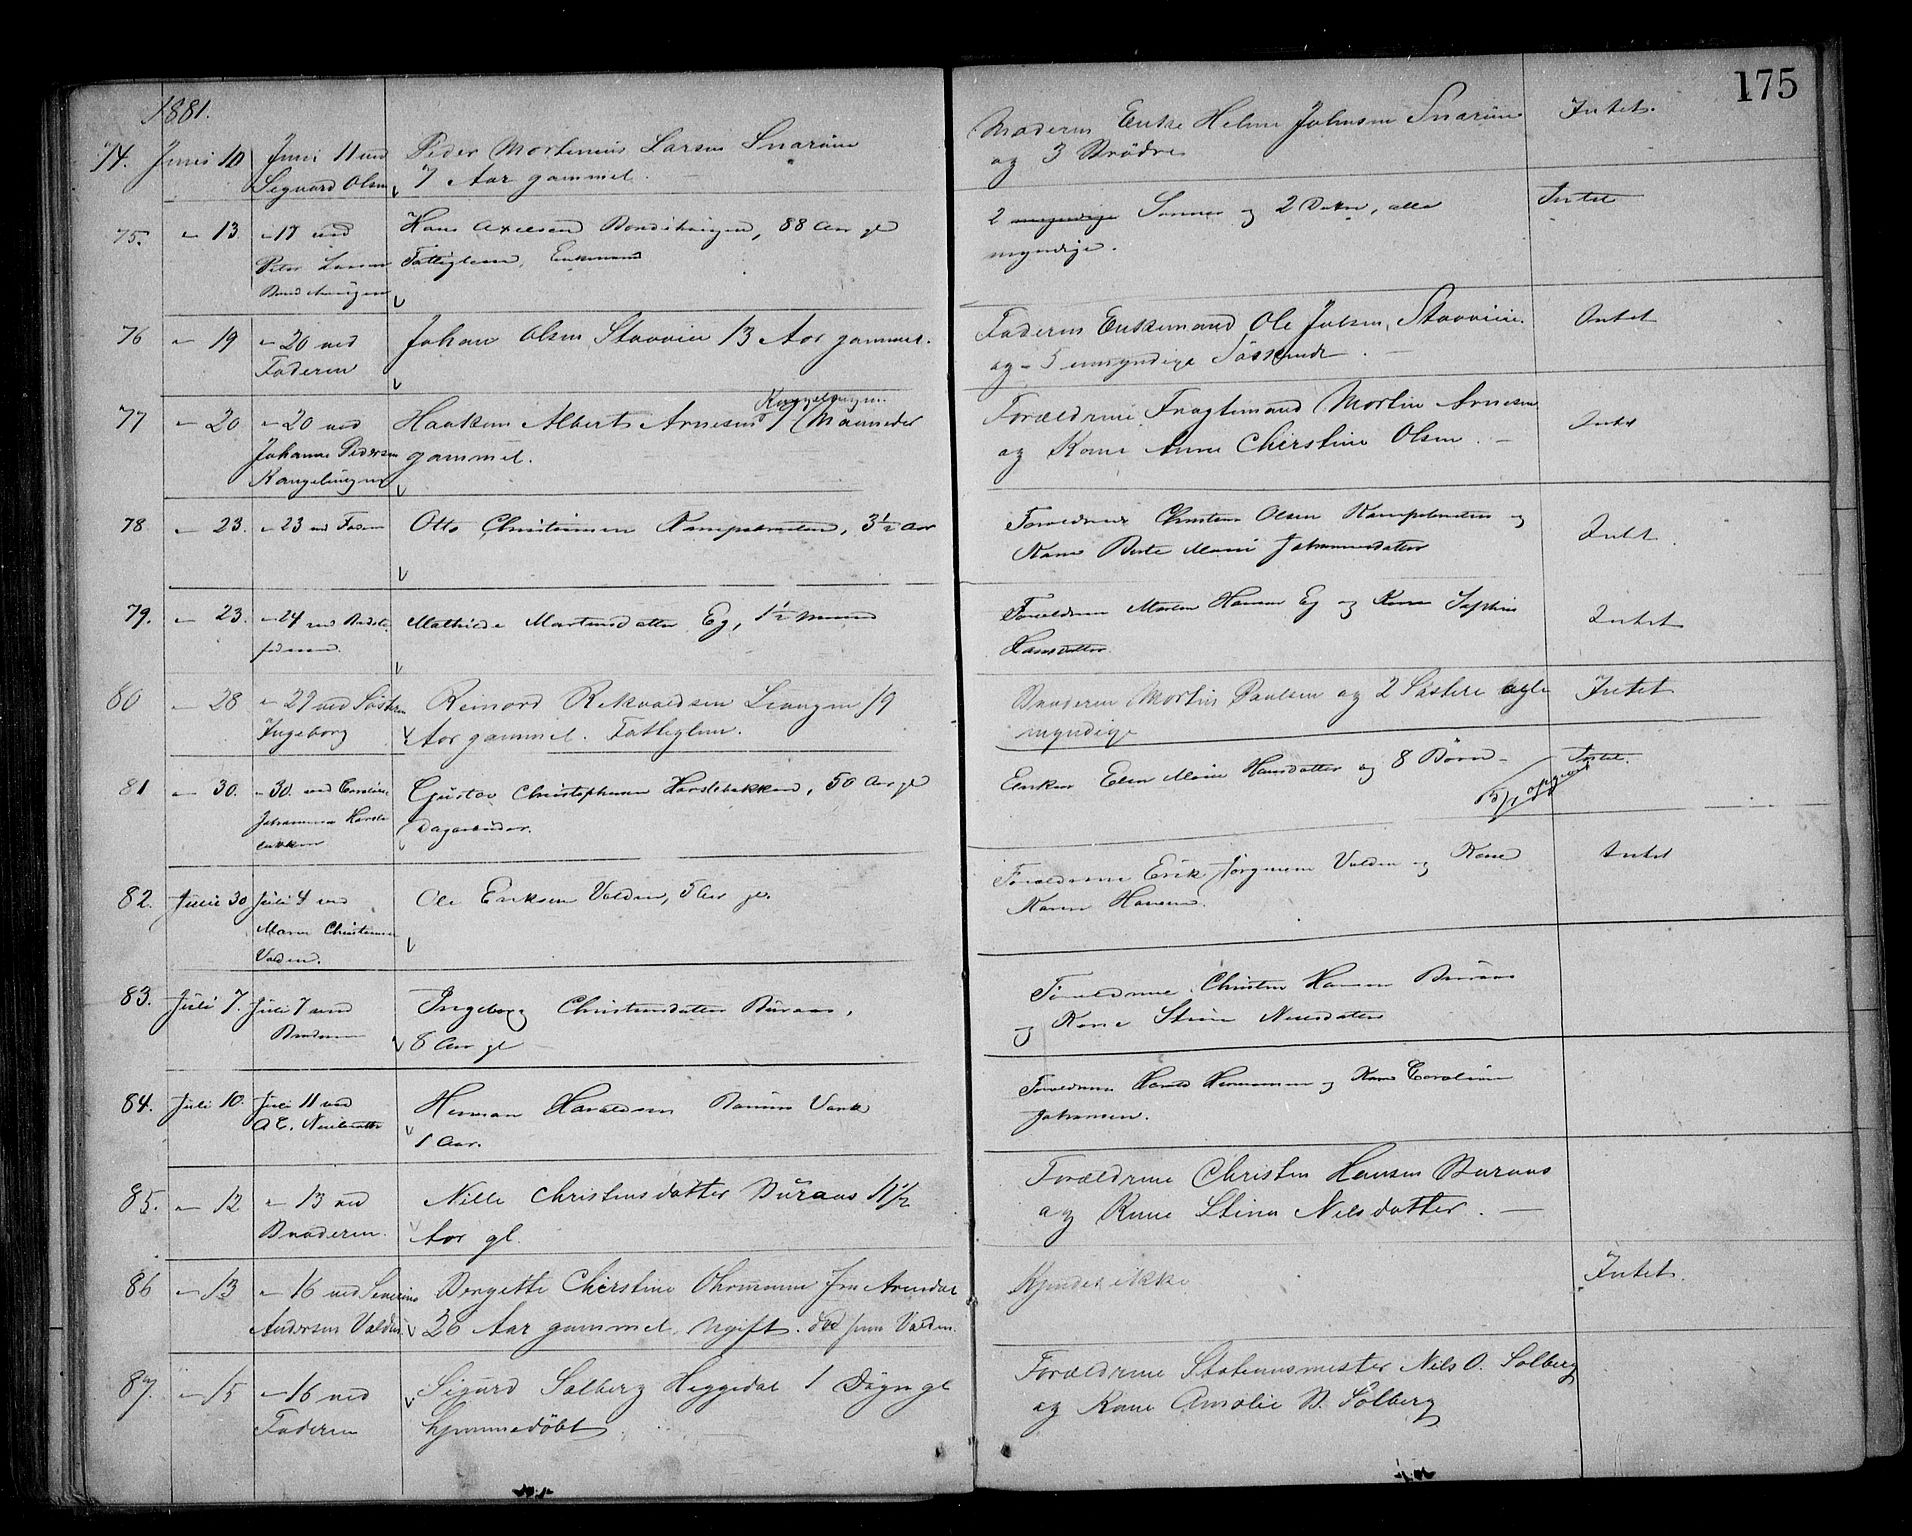 175
1881.
74. Juni 10 Juni 11 ved Peder Mortinius Larsen Snarøen Moderen Enke Helene Johnsen Snarøen Intet.
Sigvard Olsen 7 Aar gammel. og 3 Brødre
75. " 13 " 17 ved Hans Axelsen 88 Aar gl 2 myndige Sønner og 2 Døtre, alle Intet
Peter Larsen Fattiglem, Enkemand myndige.
76 " 19 " 20 ved Johan Olsen Staavien 13 Aar gammel. Faderen Enkemand Ole Julsen Staavien Intet
Faderen og 5 umyndige Søskende.
77 " 20 " 20 ved Haakon Albert Arnesen Kangelungen 7 Maaneder Forældrene Fragtemand Martin Arnesen Intet
Johanne Pedersen gammel. og Kone Anne Christine Olsen.
Kangelungen
78 " 23. " 23 ved Fader Otto Christensen, 3½ Aar Forældrene Christen Olsen og Intet
Kone Berte Marie Johannesdatter
79. " 23. " 24 ved Bedste Mathilde Martinsdatter Eg, 1½ Maaned Forældrene Martin Hansen Eg og Kone Sophie Intet
faderen Hansdatter
80 " 28 " 29 ved Søsteren Reinord Rekvaldsen 19 Broderen Mortin Paulsen og 2 Søstere alle Intet
Ingeborg Aar gammel. Fattiglem. myndige
81 " 30. " 30. ved Caroline Gustav Christophersen Harslebakken, 50 Aar gl Enken Elen Marie Hansdatter og 8 Børn Intet.
Johannesen Harsle Dagarbeider.
bakken
82. Juni 30 Juli 4 ved Ole Eriksen Valden, 5 Aar gl. Forældrene Erik Jørgensen Valden og Kone Intet
Maren Christensen Karen Hansen.
Valden.
83. Juli 7. Juli 7 ved Ingeborg Christensdatter Buraas, Forældrene Christen Hansen Buraas
Broderen 8 Aar gl og Kone Stine Nilsdatter
84. Juli 10. Juli 11 ved Herman Haraldsen Forældrene Harald Hermansen og Kone Caroline
1 Aar. Johansen.
85. " 12 " 13 ved Nille Christensdatter Buraas 11½ Forældrene Christen Hansen Buraas
Broderen. Aar gl. og Kone Stina Nilsdatter.
86 " 13 " 16 ved Severine Bergette Christine fra Arendal Kjendes ikke Intet.
Andersen Valden 26 Aar gammel, ugift. død paa Valden.
87. " 15 " 16 ved Sigurd Solberg Heggedal 1 Døgn gl Forældrene Stationsmester Nils O. Solberg
Faderen hjemmedøbt og Kone Amalie B. Solberg